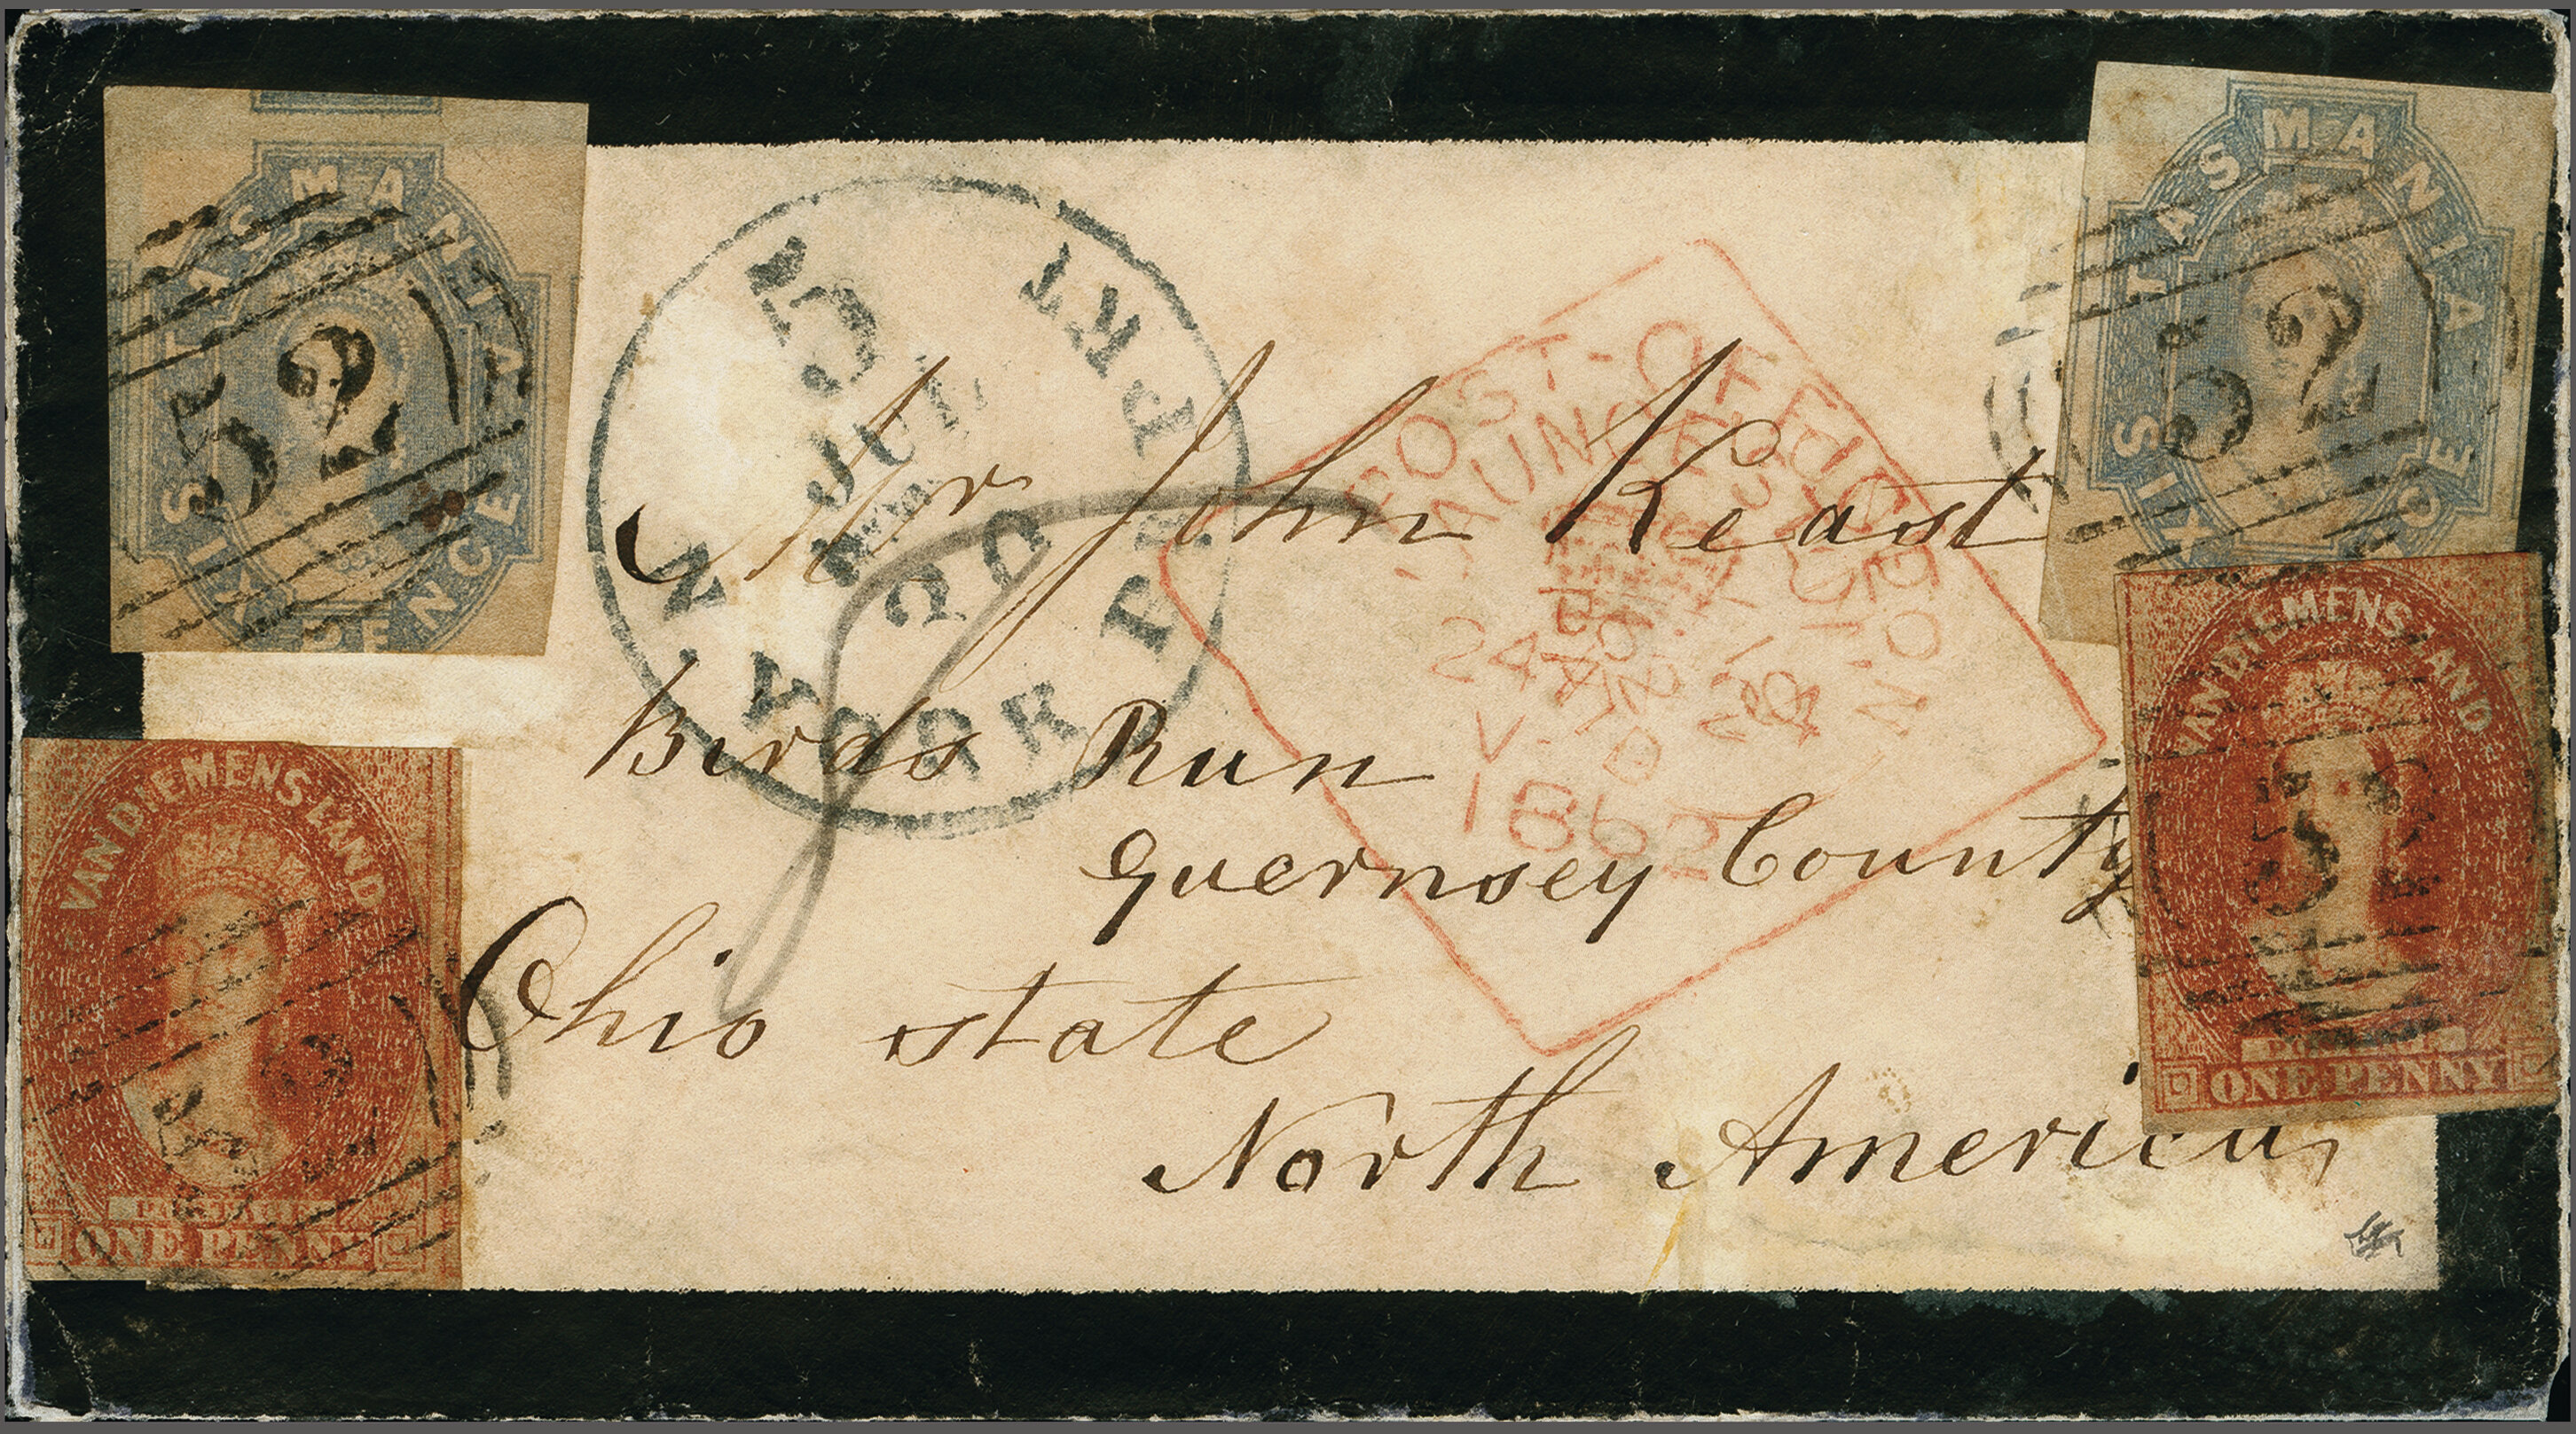 TASMANIA
SIX PENCE
52
TASMANIA
SIX PENCE
52
N. YORK BR. PKT.
5
JUL
20
POST-OFFICE
LAUNCESTON
24
V. D. L.
1862
Mr John Keast
Birds Run
Guernsey County
Ohio state
North America
VAN DIEMENS LAND
POSTAGE
ONE PENNY
52
VAN DIEMENS LAND
ONE PENNY
52